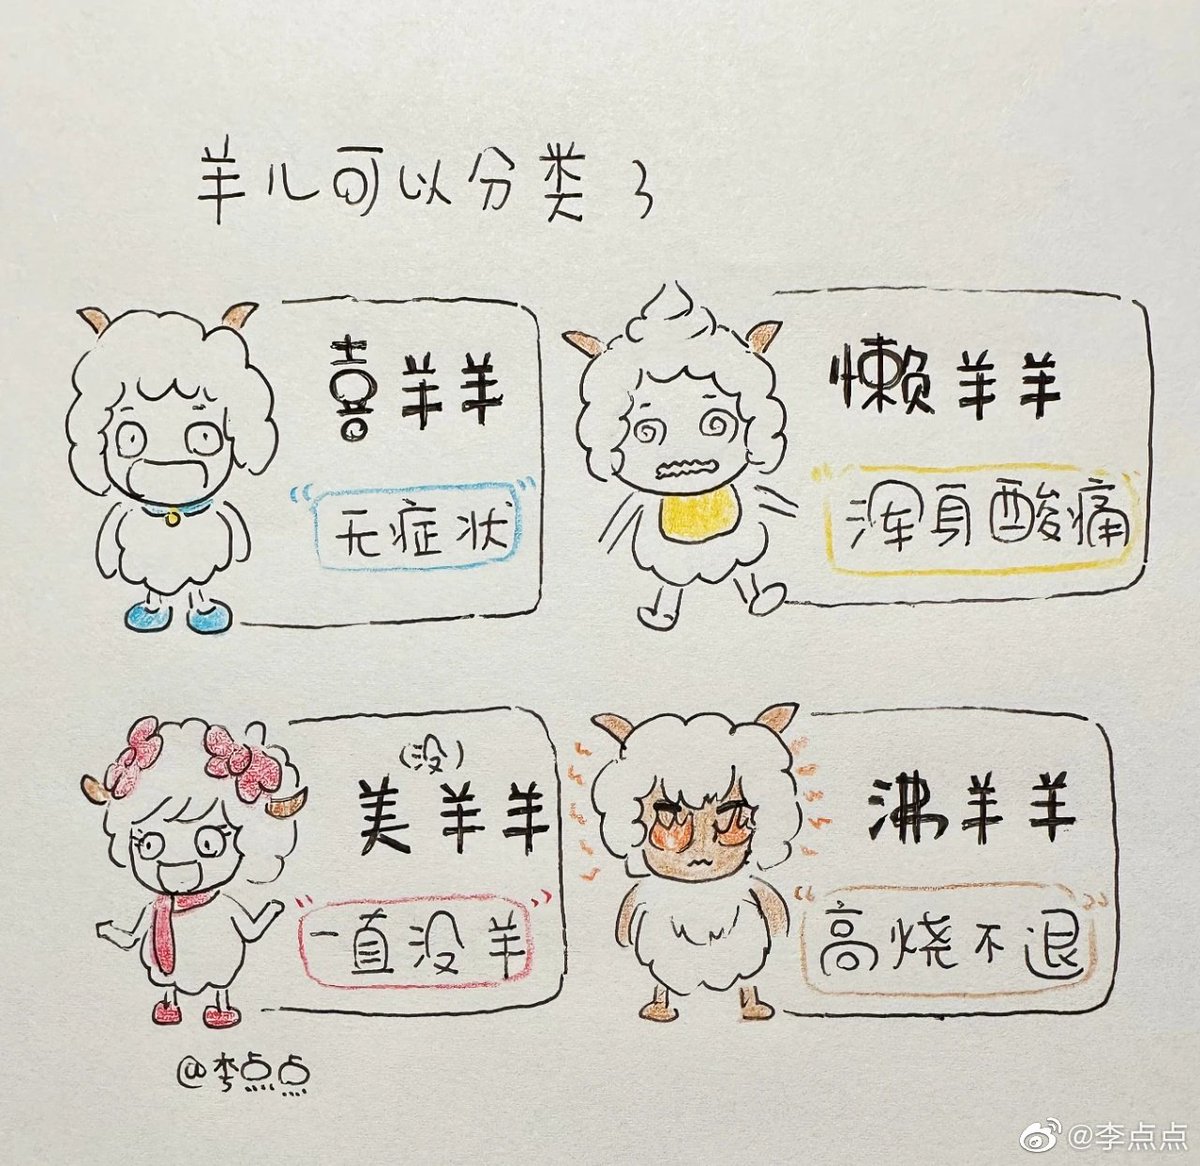 羊儿可以分类了
喜羊羊
"无症状"
懒羊羊
"浑身酸痛"
(没)
美羊羊
"一直没羊"
沸羊羊
"高烧不退"
@李点点
@李点点